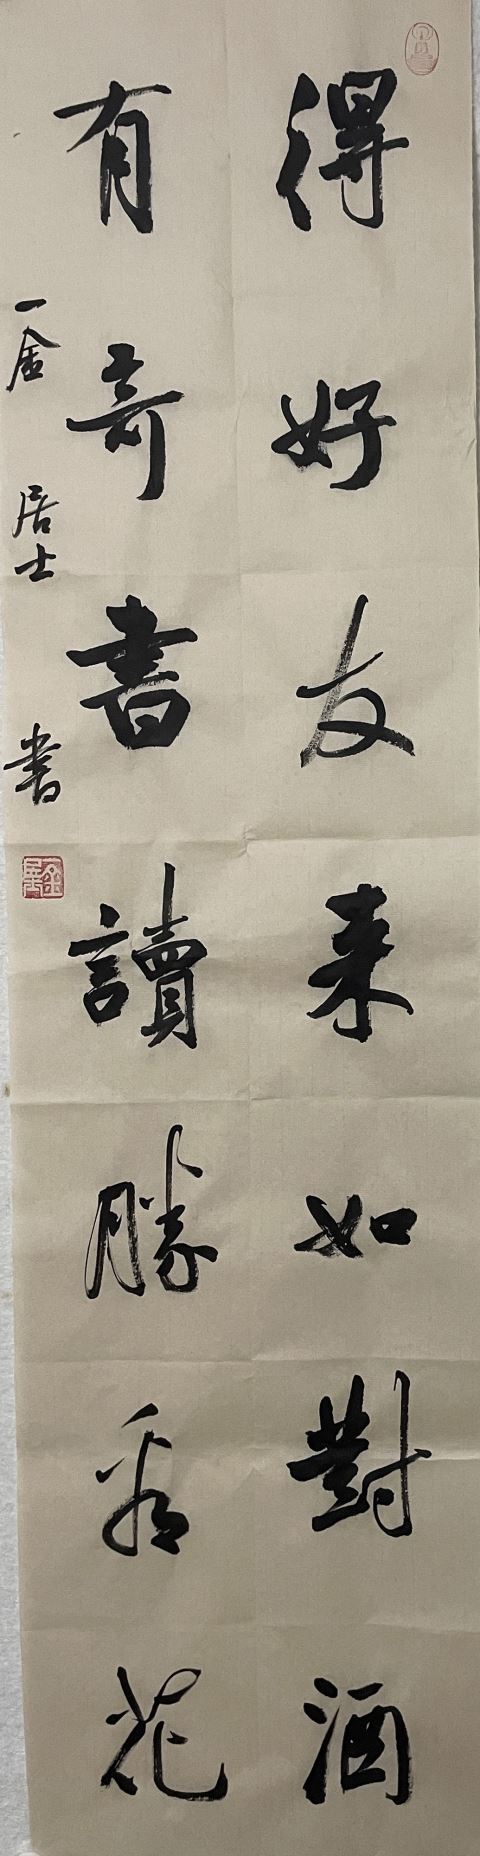 得好友来如對酒
有奇書讀勝看花
一金居士書